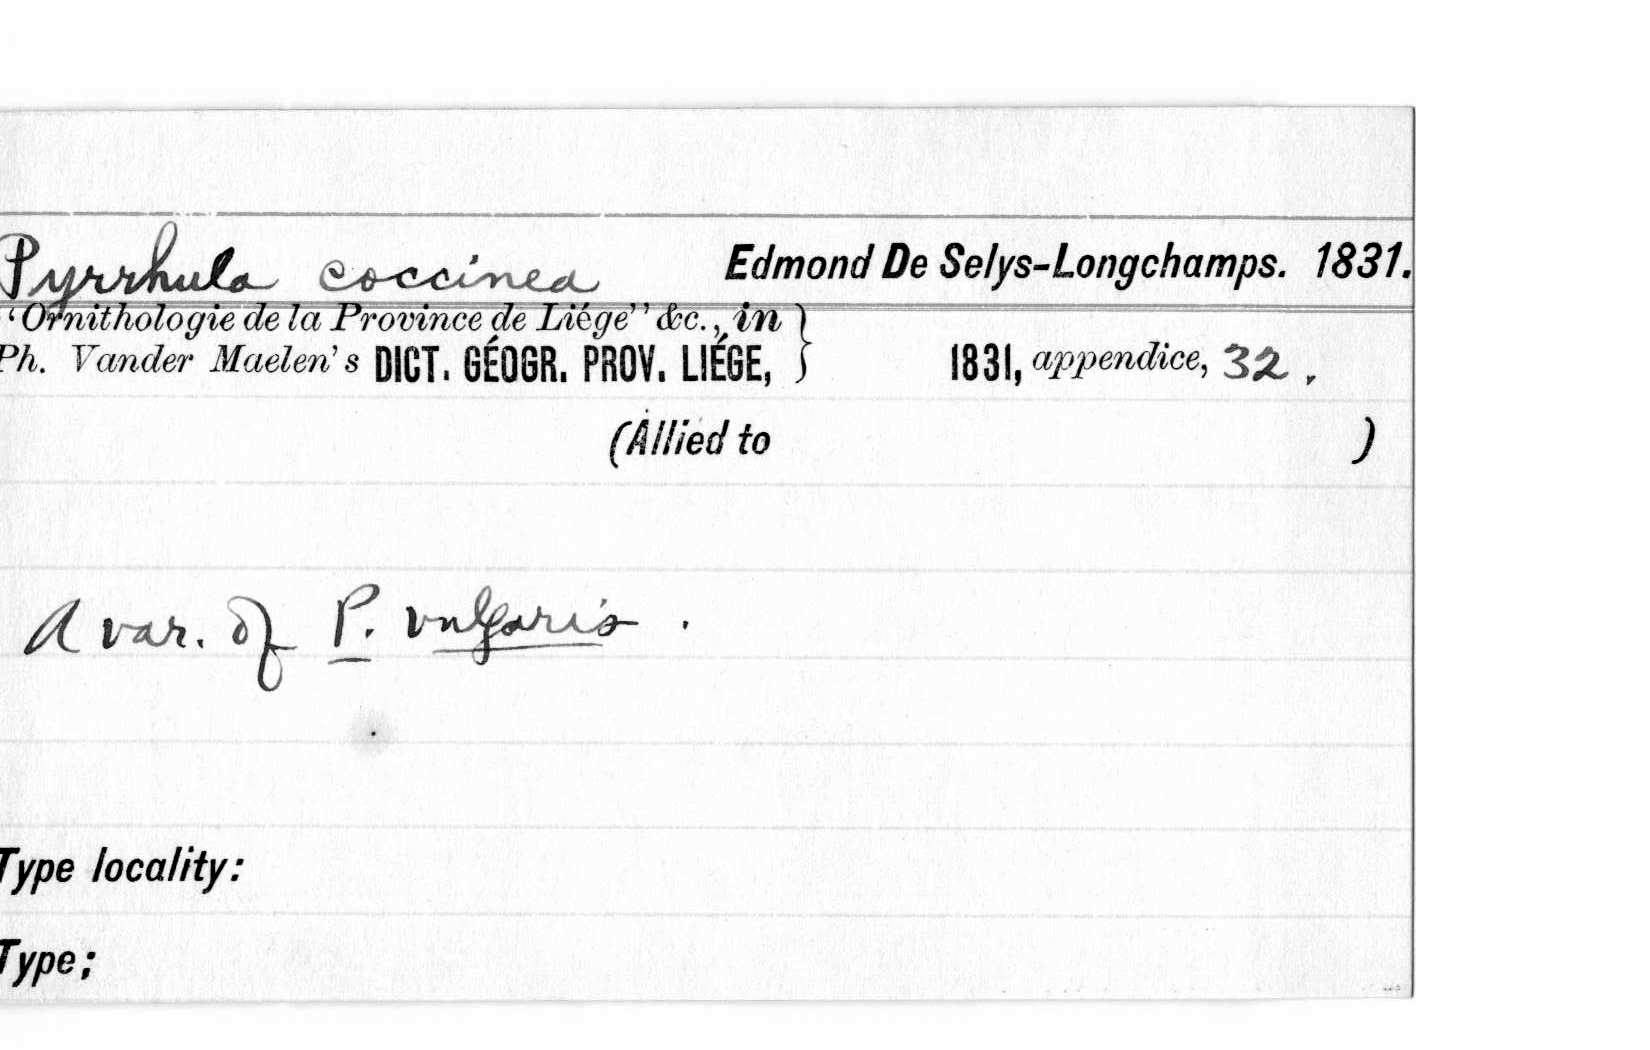 Pyrrhula coccinea Edmond De Selys-Longchamps. 1831.
"Ornithologie de la Province de Liége" &c., in
Ph. Vander Maelen's DICT. GÉOGR. PROV. LIÉGE, } 1831, appendice, 32.
(Allied to )
A var. of P. vulgaris.
Type locality:
Type;